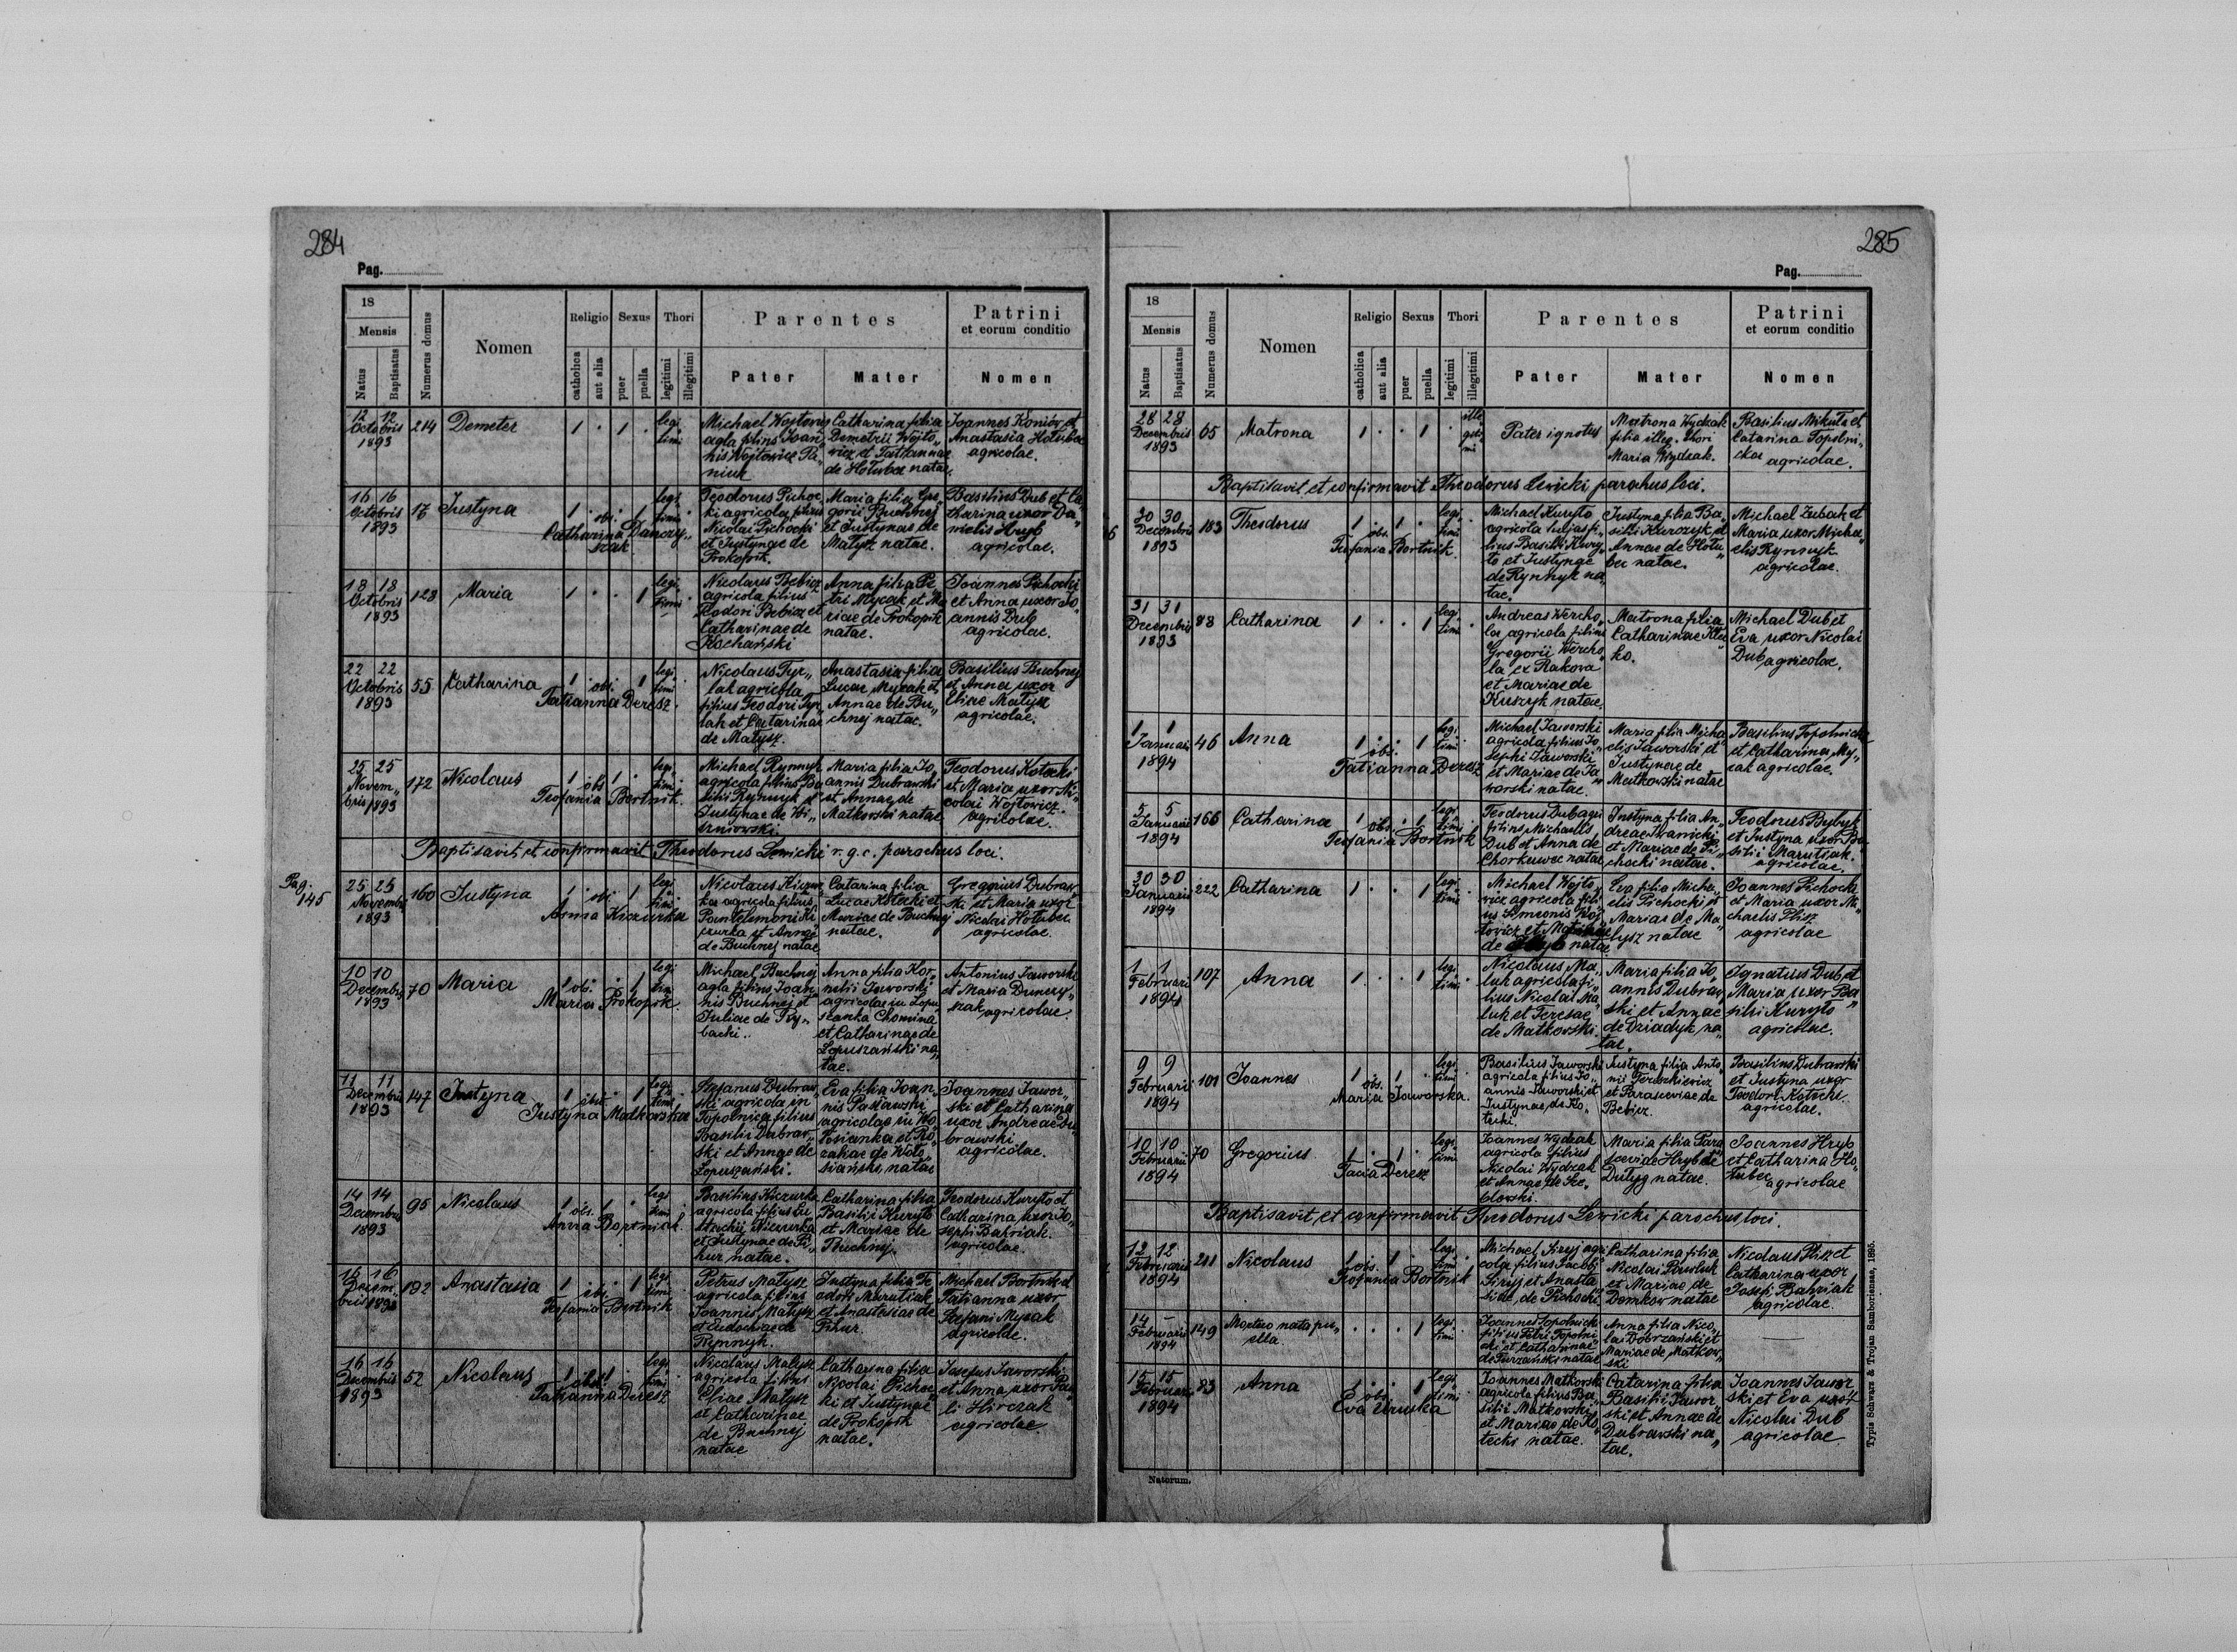 284
Pag.
18
Mensis
Natus
Baptisatus
Numerus domus
Nomen
Religio
catholica
aut alia
Sexus
puer
puella
Thori
legitimi
illegitimi
Parentes
Pater
Mater
Patrini
et eorum conditio
Nomen
12 12
Octobris
1893
214
Demeter
1 . 1 .
legi
timi
Michael Wojtowicz
agla filius Joan„
nis Wojtowicz Pa„
niuk
Catharina filia
Demetrii Wojto„
wicz et Tatiannae
de Hołubec natae.
Joannes Koniów et
Anastasia Hołubec
agricolae.
16 16
Octobris
1893
17
Justyna
1 . . 1
obs.
Catharina Danczy„
szak
legi
timi
Teodorus Pichoc„
ki agricola filius
Nicolai Pichocki
et Justynae de
Prokopik.
Maria filia Gre„
gorii Buchnej
et Justynae de
Matysz natae.
Basilius Dub et Ca„
tharina uxor Da„
nielis Hryb
agricolae.
18 18
Octobris
1893
128
Maria
1 . . 1
legi
timi
Nicolaus Bebicz
agricola filius
Teodori Bebicz et
Catharinae de
Kochański
Anna filia Pe„
tri Mycak et Ma„
riae de Prokopik
natae.
Joannes Pichocki
et Anna uxor Jo„
annis Dub
agricolae.
22 22
Octobris
1893
55
Catharina
1 . . 1
obs.
Tatianna Deresz.
legi
timi
Nicolaus Tyr„
lak agricola
filius Teodori Tyr„
lak et Catarinae
de Matysz.
Anastasia filia
Lucae Mycak et
Annae de Bu„
chnej natae.
Basilius Buchnej
et Anna uxor
Eliae Matysz
agricolae.
25 25
Novem„
bris 1893
172
Nicolaus
1 . 1 .
obs
Teofania Bortnik.
legi
timi
Michael Rynnyk
agricola filius Ba„
silii Rynnyk et
Justynae de Wi„
szniowski.
Maria filia Jo„
annis Dubrawski
et Annae de
Matkowski natae.
Teodorus Kotecki
et Maria uxor Ni„
colai Wojtowicz.
agricolae.
Baptisavit et confirmavit Theodorus Lewicki r. g. c. parochus loci.
Pag.
145
25 25
Novembris
1893
160
Justyna
1 . . 1
obs.
Anna Kiczurka
legi
timi
Nicolaus Kiczur„
ka agricola filius
Pantelemoni Ki„
czurka et Annae
de Buchnej natae
Catarina filia
Lucae Kotecki et
Mariae de Buchnej
natae.
Gregorius Dubraw„
ski et Maria uxor
Nicolai Hołubec.
agricolae.
10 10
Decembris
1893
70
Maria
1 . . 1
obs.
Maria Prokopik.
legi
timi
Michael Buchnej
agla filius Joan„
nis Buchnej et
Juliae de Ry„
backi.
Anna filia Kor„
nelii Jaworski
agricolae in Łopu„
szanka Chomina
et Catharinae de
Łopuszański na„
tae.
Antonius Jaworski
et Maria Dunczy„
szak agricolae.
11 11
Decembris
1893
147
Justyna
1 . . 1
obs.
Justyna Matkowska
legi
timi
Stefanus Dubraw„
ski agricola in
Topolnica filius
Basilii Dubraw„
ski et Annae de
Łopuszański.
Eva filia Joan„
nis Pasławski
agricolae in Wo„
łosianka et Ro„
zaliae de Woło„
siański natae
Joannes Jawor„
ski et Catharina
uxor Andreae Du„
brawski
agricolae.
14 14
Decembris
1893
95
Nicolaus
1 . 1 .
obs.
Anna Bortniak.
legi
timi
Basilius Kiczurka
agricola filius Eu„
stachii Kiczurka
et Justynae de Pi„
hur natae.
Catharina filia
Basilii Kuryto
et Mariae de
Buchnej.
Teodorus Kuryto et
Catharina uxor Jo„
sephi Bahriak.
agricolae.
16 16
Decem„
bris 1893
192
Anastasia
1 . . 1
obs.
Teofania Bortnik
legi
timi
Petrus Matysz
agricola filius
Joannis Matysz
et Eudochiae de
Rynnyk.
Justyna filia Te„
odori Marutiak
et Anastasiae de
Pihur.
Michael Bortnik et
Tatianna uxor
Stefani Mycak
agricolae.
16 16
Decembris
1893
52
Nicolaus
1 . 1 .
obs.
Tatianna Deresz
legi
timi
Nicolaus Matysz
agricola filius
Eliae Matysz
et Catharinae
de Buchnej
natae
Catharina filia
Nicolai Pichoc„
ki et Justynae
de Prokopik
natae.
Josefus Jaworski
et Anna uxor Pau„
li Hirczak
agricolae.
285
Pag.
18
Mensis
Natus
Baptisatus
Numerus domus
Nomen
Religio
catholica
aut alia
Sexus
puer
puella
Thori
legitimi
illegitimi
Parentes
Pater
Mater
Patrini
et eorum conditio
Nomen
28 28
Decembris
1893
65
Matrona
1 . . 1 .
ille
giti
mi
Pater ignotus
Matrona Wydzak
filia illeg. thori
Maria Wydzak.
Basilius Mikuła et
Catarina Topolni„
cka agricolae.
Baptisavit et confirmavit Theodorus Lewicki parochus loci.
30 30
Decembris
1893
183
Theodorus
1 . 1 .
obs.
Teofania Bortnik.
legi
timi
Michael Kuryto
agricola fi„
lius Basilii Kury„
to et Justynae
de Rynnyk na„
tae.
Justyna filia Ba„
silii Kurczyk et
Annae de Hołu„
bec natae.
Michael Zubak et
Maria uxor Micha„
elis Rynnyk
agricolae.
31 31
Decembris
1893
88
Catharina
1 . . 1
legi
timi
Andreas Wercho„
la agricola filius
Gregorii Wercho„
la ex Rakova
et Mariae de
Kuszyk natae.
Matrona filia
Catharinae Kleu„
ko.
Michael Dub et
Eva uxor Nicolai
Dub agricolae.
1 1
Januar.
1894
46
Anna
1 . . 1
obs.
Tatianna Deresz
legi
timi
Michael Jaworski
agricola filius Jo„
sephi Jaworski
et Mariae de Ja„
worski natae.
Maria filia Micha„
elis Jaworski et
Justynae de
Matkowski natae
Basilius Topolnicki
et Catharina My„
cak agricolae.
5 5
Januarii
1894
166
Catharina
1 . . 1
obs.
Teofania Bortnik
legi
timi
Teodorus Dub agri
filius Michaelis
Dub et Anna de
Chorkawec natae
Justyna filia An„
dreae Iwanicki
et Mariae de Pi„
chocki natae.
Teodorus Bybyk
et Justyna uxor Ba„
silii Marutiak.
agricolae.
30 30
Januarii
1894
222
Catharina
1 . . 1
legi
timi
Michael Wojto„
wicz agricola fili„
us Simeonis Woj„
towicz et
de Hryb natae
Eva filia Micha„
elis Pichocki et
Mariae de Ma„
tysz natae
Joannes Pichocki
et Maria uxor Mi„
chaelis Plisz
agricolae
1 1
Februarii
1894
107
Anna
1 . . 1
legi
timi
Nicolaus Ma„
luk agricola fi„
lius Nicolai Ma„
luk et Teresae
de Matkowski.
Maria filia Jo„
annis Dubraw„
ski et Annae
de Dziadyk na„
tae.
Ignatius Dub et
Maria uxor Ba„
silii Kuryto
agricolae.
9 9
Februarii
1894
101
Joannes
1 . 1 .
obs.
Maria Jaworska.
legi
timi
Basilius Jaworski
agricola filius Jo„
annis Jaworski et
Justynae de Ko„
tecki.
Justyna filia Anto„
nii
et Parasceviae de
Bebicz.
Basilius Dubrawski
et Justyna uxor
Teodori Kotecki.
agricolae.
10 10
Februarii
1894
70
Gregorius
1 . 1 .
Tacia Deresz
legi
timi
Joannes Wydzak
agricola filius
Nicolai Wydzak
et Annae de Sze„
Maria filia Para„
sceviae Hryb de
natae.
Joannes Hryb
et Catharina Ho„
łubec agricolae
Baptisavit et confirmavit Theodorus Lewicki parochus loci.
12 12
Februarii
1894
211
Nicolaus
1 . 1 .
obs.
Teofania Bortnik
legi
timi
Michael Siryj agri
cola filius Jacobi
Siryj et Anasta
siae de Pichocki
Catharina filia
Nicolai Pawluk
et Mariae de
Domkow natae
Nicolaus Plisz et
Catharina uxor
Josefi Bahriak
agricolae.
14 –
Februarii
1894
149
Mortuo nata pu„
ella.
. . . 1
legi
timi
Joannes Topolnicki
filius Petri Topolni„
cki et Catharinae
natae
Anna filia Nico„
lai Dobrzański et
Mariae de Matkow„
ski
15 15
Februar.
1894
83
Anna
1 . . 1
obs.
Eva Uruska
legi
timi
Joannes Matkowski
agricola filius Ba„
silii Matkowski
et Mariae de Ko„
tecki natae.
Catarina filia
Basilii Jawor„
ski et Annae de
Dubrawski na„
tae.
Joannes Jawor
ski et Eva uxor
Nicolai Dub
agricolae
Natorum.
Typis Schwarz & Trojan Samboriensae, 1895.